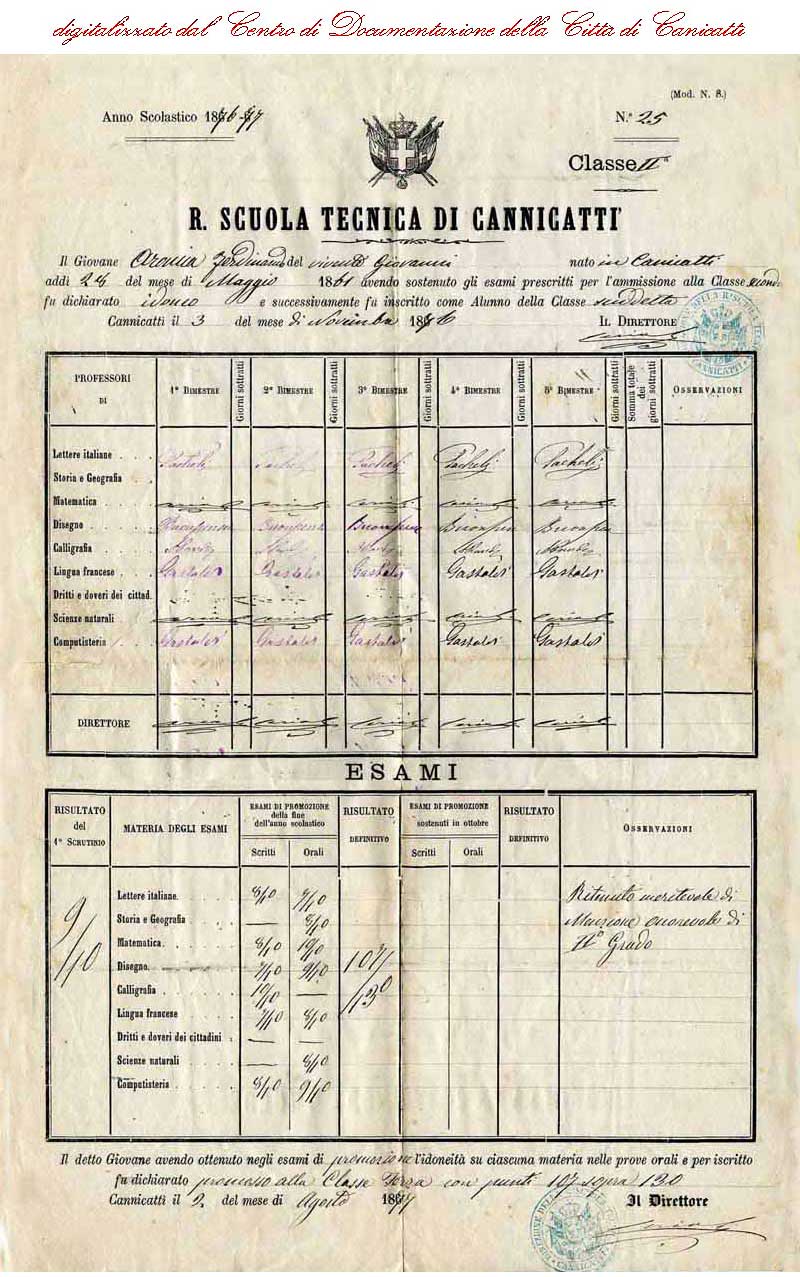 digitalizzato dal Centro di Documentazione della Città di Canicattì
(Mod. N. 8.)
Anno Scolastico 1876-77
N.° 25
Classe IIa
R. SCUOLA TECNICA DI CANNICATTI'
Il Giovane Ferdinando del vivente Giovanni nato in Canicattì
addì 28 del mese di Maggio 1861 avendo sostenuto gli esami prescritti per l'ammissione alla Classe seconda
fu dichiarato idoneo e successivamente fu inscritto come Alunno della Classe suddetta
Cannicattì il 3 del mese di Novembre 1876 IL DIRETTORE
PROFESSORI DI
1° BIMESTRE
Giorni sottratti
2° BIMESTRE
Giorni sottratti
3° BIMESTRE
Giorni sottratti
4° BIMESTRE
Giorni sottratti
5° BIMESTRE
Giorni sottratti
Somma totale dei giorni sottratti
OSSERVAZIONI
Lettere italiane Pachelj Pachelj Pachelj Pachelj Pachelj
Storia e Geografia
Matematica
Disegno
Calligrafia
Lingua francese Gastaldi Gastaldi Gastaldi Gastaldi Gastaldi
Dritti e doveri dei cittad.
Scienze naturali
Computisteria Gastaldi Gastaldi Gastaldi Gastaldi Gastaldi
DIRETTORE
ESAMI
RISULTATO del 1° SCRUTINIO
MATERIA DEGLI ESAMI
ESAMI DI PROMOZIONE della fine dell'anno scolastico
Scritti Orali
RISULTATO DEFINITIVO
ESAMI DI PROMOZIONE sostenuti in ottobre
Scritti Orali
RISULTATO DEFINITIVO
OSSERVAZIONI
9/10
107/130
Ritenuto meritevole di
Menzione onorevole di
II° Grado
Lettere italiane 8/10 7/10
Storia e Geografia — 8/10
Matematica 8/10 10/10
Disegno 7/10 9/10
Calligrafia 10/10 —
Lingua francese 7/10 8/10
Dritti e doveri dei cittadini — —
Scienze naturali — 8/10
Computisteria 8/10 9/10
Il detto Giovane avendo ottenuto negli esami di promozione l'idoneità su ciascuna materia nelle prove orali e per iscritto
fu dichiarato promosso alla Classe terza con punti 107 sopra 130
Cannicattì il 2 del mese di Agosto 1877 Il Direttore